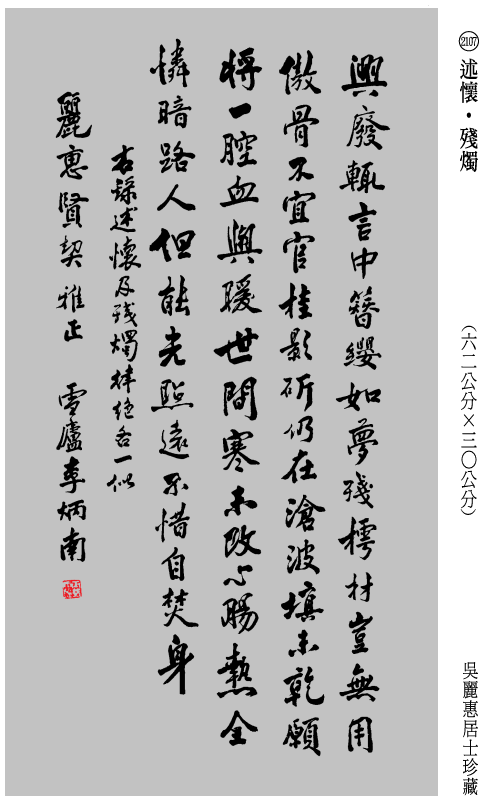 2107 述懷・殘燭
(六二公分×三〇公分)
吳麗惠居士珍藏
興廢輒言中簪纓如夢殘樗材豈無用
傲骨不宜官桂影斫仍在滄波填未乾願
將一腔血與暖世間寒未改心腸熱全
憐暗路人但能光照遠不惜自焚身
右錄述懷及殘燭律絕各一似
麗惠賢契雅正 雪廬李炳南